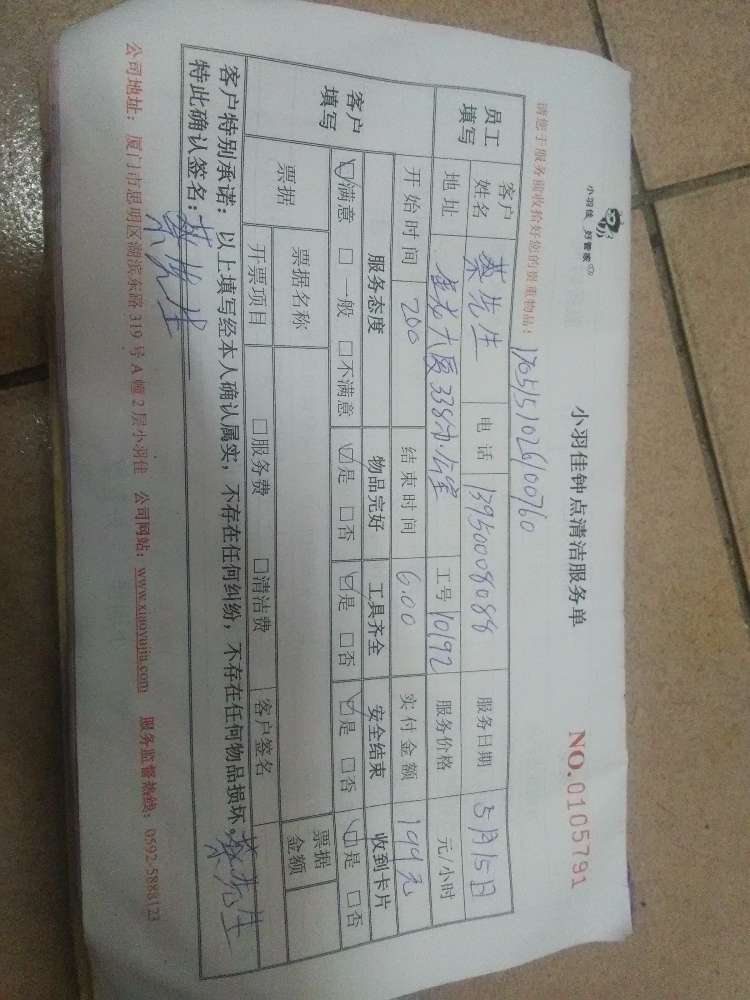 小羽佳 好管家
小羽佳钟点清洁服务单
NO.0105791
请您于服务前收拾好您的贵重物品！
170515102610760
员工填写
客户姓名 蔡先生 电话 13950008088 服务日期 5月15日
地址 大厦338办公室 工号 10192 服务价格 元/小时
客户填写
开始时间 2:00 结束时间 6:00 实付金额 199元
服务态度 物品完好 工具齐全 安全结束 收到卡片
☑满意 □一般 □不满意 ☑是 □否 ☑是 □否 ☑是 □否 ☑是 □否
票据 票据名称 票据金额
开票项目 □服务费 □清洁费 客户签名 蔡先生
客户特别承诺：以上填写经本人确认属实，不存在任何纠纷，不存在任何物品损坏，
特此确认签名：蔡先生
公司地址：厦门市思明区湖滨东路319号A幢2层小羽佳 公司网站：www.xiaoyujia.com 服务监督热线：0592-5888123